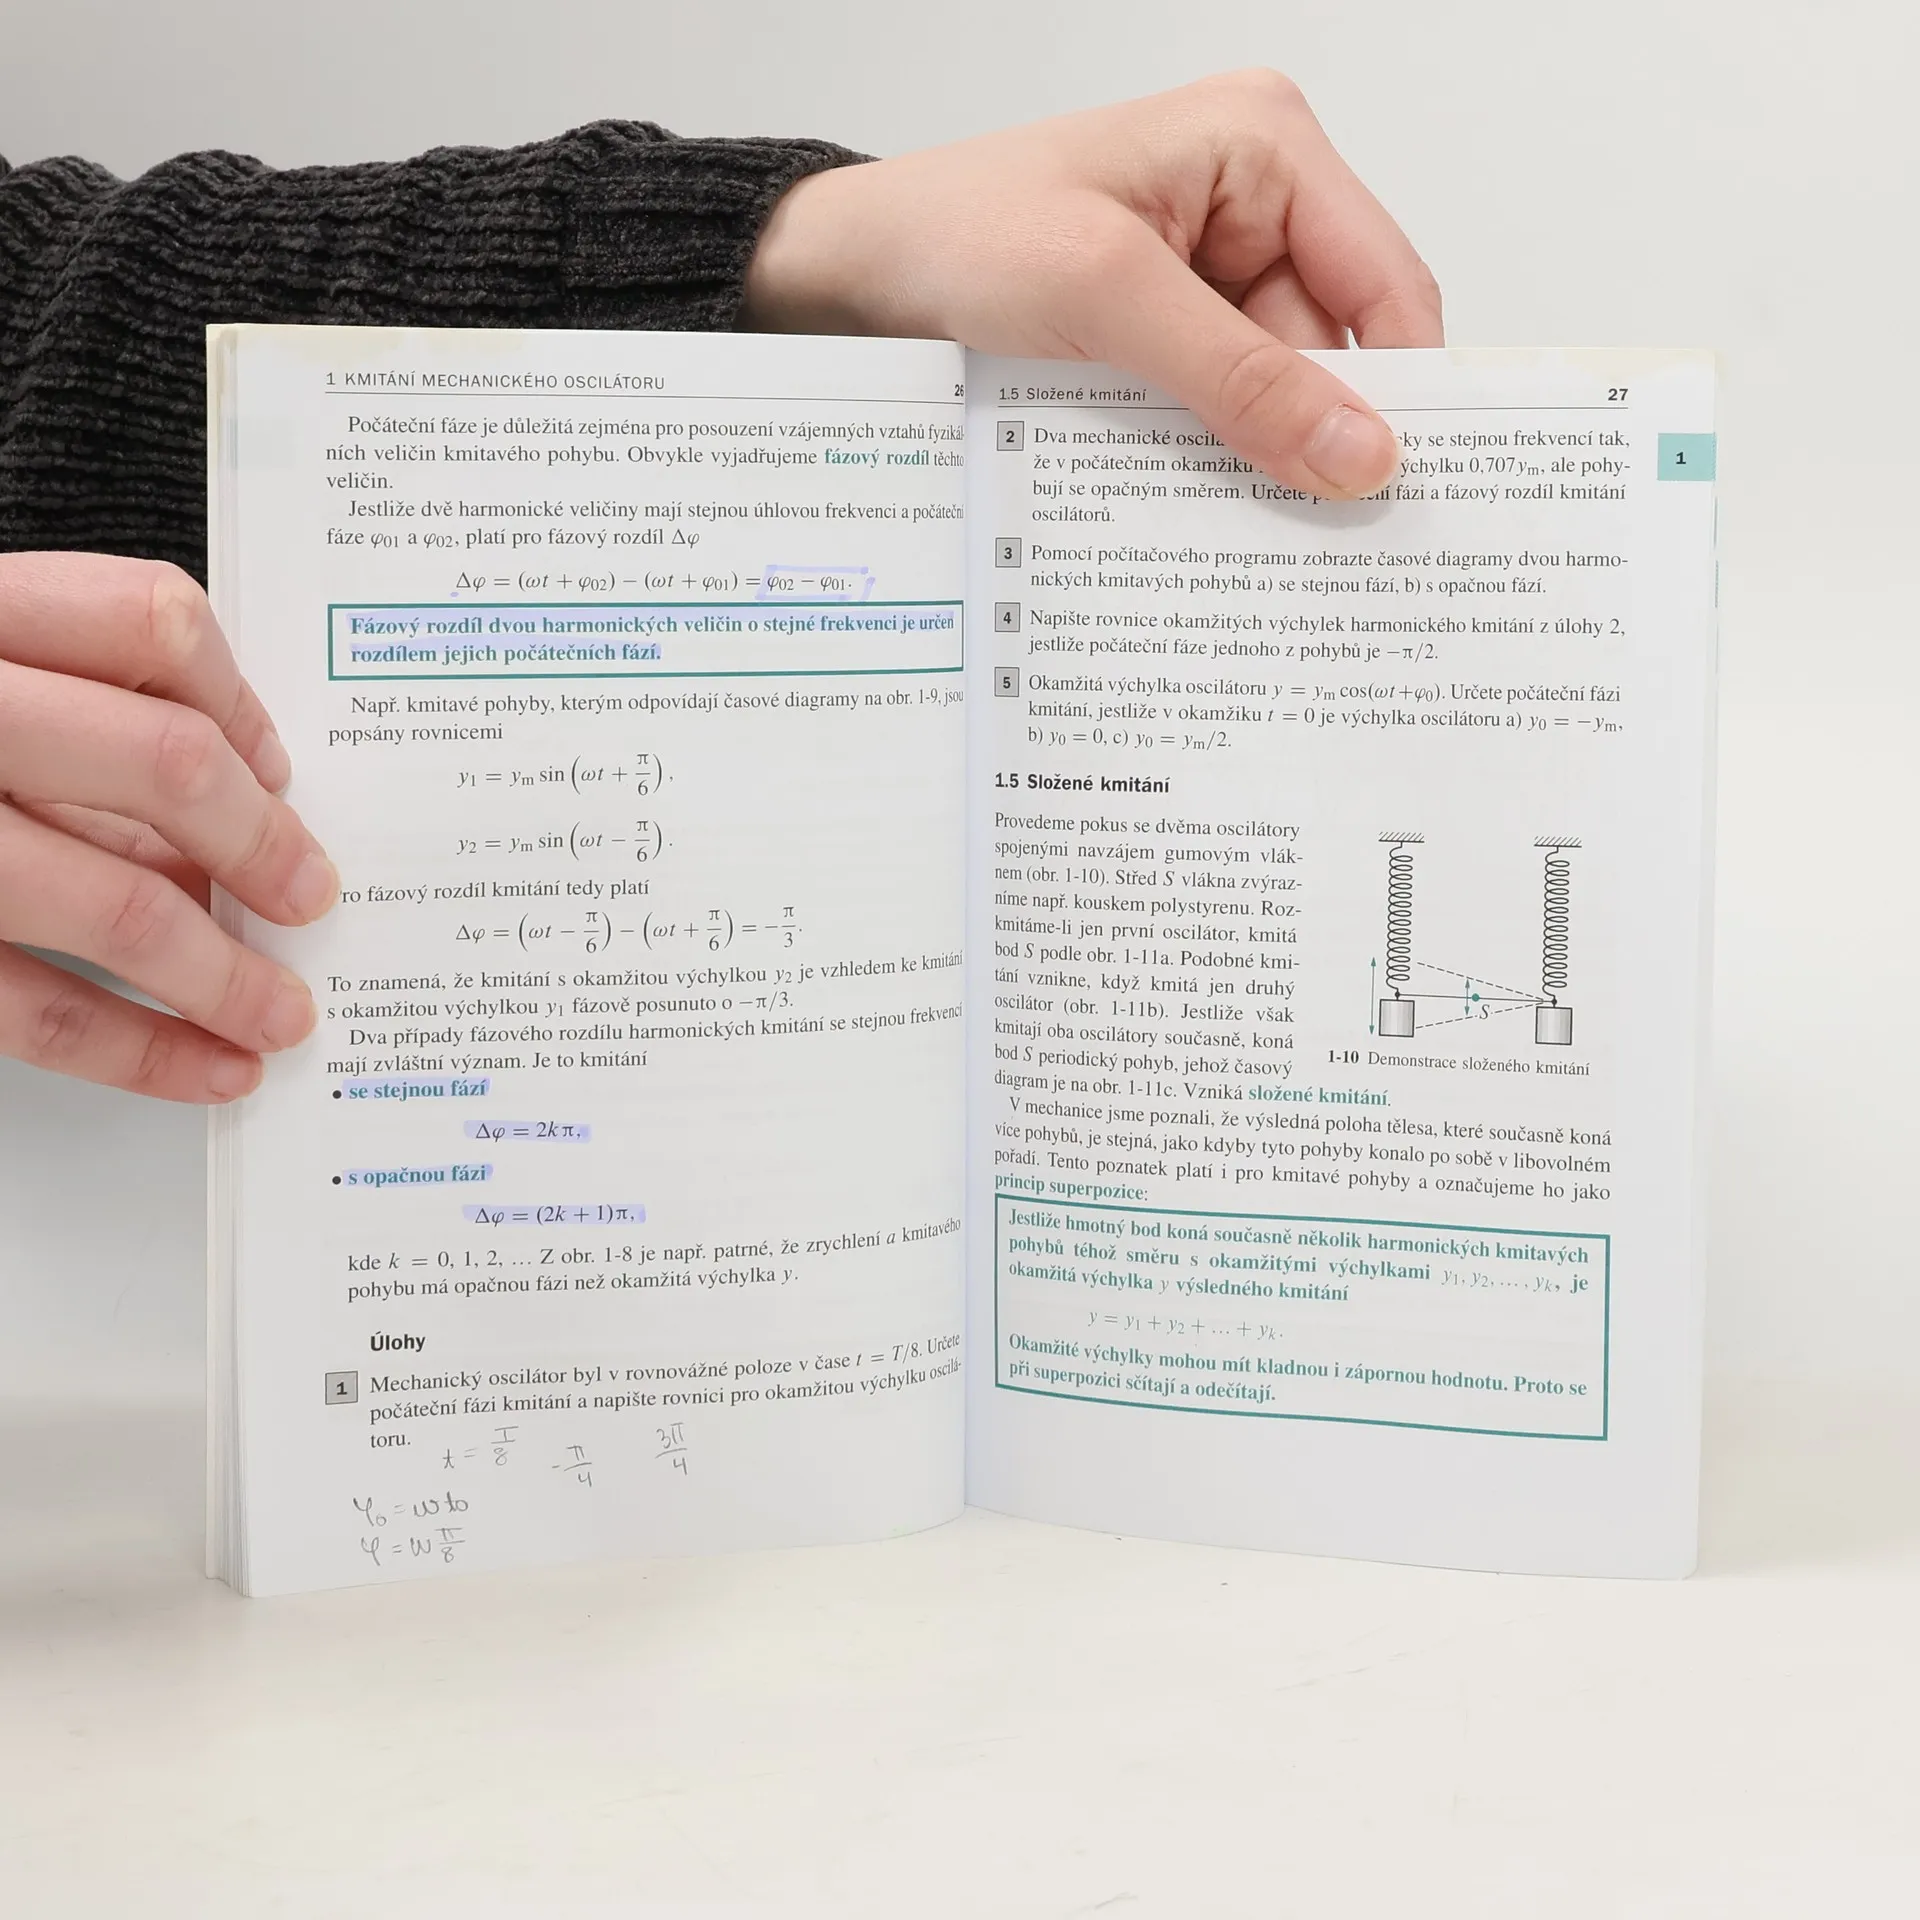 1 KMITÁNÍ MECHANICKÉHO OSCILÁTORU 26
Počáteční fáze je důležitá zejména pro posouzení vzájemných vztahů fyzikál-
ních veličin kmitavého pohybu. Obvykle vyjadřujeme fázový rozdíl těchto
veličin.
Jestliže dvě harmonické veličiny mají stejnou úhlovou frekvenci a počáteční
fáze φ01 a φ02, platí pro fázový rozdíl Δφ
Δφ = (ωt + φ02) − (ωt + φ01) = φ02 − φ01.
Fázový rozdíl dvou harmonických veličin o stejné frekvenci je určen
rozdílem jejich počátečních fází.
Např. kmitavé pohyby, kterým odpovídají časové diagramy na obr. 1-9, jsou
popsány rovnicemi
y1 = ym sin (ωt + π/6),
y2 = ym sin (ωt − π/6).
ro fázový rozdíl kmitání tedy platí
Δφ = (ωt − π/6) − (ωt + π/6) = −π/3.
To znamená, že kmitání s okamžitou výchylkou y2 je vzhledem ke kmitání
s okamžitou výchylkou y1 fázově posunuto o −π/3.
Dva případy fázového rozdílu harmonických kmitání se stejnou frekvencí
mají zvláštní význam. Je to kmitání
• se stejnou fází
Δφ = 2kπ,
• s opačnou fází
Δφ = (2k + 1)π,
kde k = 0, 1, 2, … Z obr. 1-8 je např. patrné, že zrychlení a kmitavého
pohybu má opačnou fázi než okamžitá výchylka y.
Úlohy
1 Mechanický oscilátor byl v rovnovážné poloze v čase t = T/8. Určete
počáteční fázi kmitání a napište rovnici pro okamžitou výchylku oscilá-
toru.
t = T/8 -π/4 3π/4
φ0 = ωt0
φ = ω π/8
1.5 Složené kmitání 27
2 Dva mechanické oscilá ky se stejnou frekvencí tak,
že v počátečním okamžiku ýchylku 0,707ym, ale pohy-
bují se opačným směrem. Určete fázi a fázový rozdíl kmitání
oscilátorů.
1
3 Pomocí počítačového programu zobrazte časové diagramy dvou harmo-
nických kmitavých pohybů a) se stejnou fází, b) s opačnou fází.
4 Napište rovnice okamžitých výchylek harmonického kmitání z úlohy 2,
jestliže počáteční fáze jednoho z pohybů je −π/2.
5 Okamžitá výchylka oscilátoru y = ym cos(ωt+φ0). Určete počáteční fázi
kmitání, jestliže v okamžiku t = 0 je výchylka oscilátoru a) y0 = −ym,
b) y0 = 0, c) y0 = ym/2.
1.5 Složené kmitání
Provedeme pokus se dvěma oscilátory
spojenými navzájem gumovým vlák-
nem (obr. 1-10). Střed S vlákna zvýraz-
níme např. kouskem polystyrenu. Roz-
kmitáme-li jen první oscilátor, kmitá
bod S podle obr. 1-11a. Podobné kmi-
tání vznikne, když kmitá jen druhý
oscilátor (obr. 1-11b). Jestliže však
kmitají oba oscilátory současně, koná
bod S periodický pohyb, jehož časový
diagram je na obr. 1-11c. Vzniká složené kmitání.
S
1-10 Demonstrace složeného kmitání
V mechanice jsme poznali, že výsledná poloha tělesa, které současně koná
více pohybů, je stejná, jako kdyby tyto pohyby konalo po sobě v libovolném
pořadí. Tento poznatek platí i pro kmitavé pohyby a označujeme ho jako
princip superpozice:
Jestliže hmotný bod koná současně několik harmonických kmitavých
pohybů téhož směru s okamžitými výchylkami y1, y2, … , yk, je
okamžitá výchylka y výsledného kmitání
y = y1 + y2 + … + yk.
Okamžité výchylky mohou mít kladnou i zápornou hodnotu. Proto se
při superpozici sčítají a odečítají.